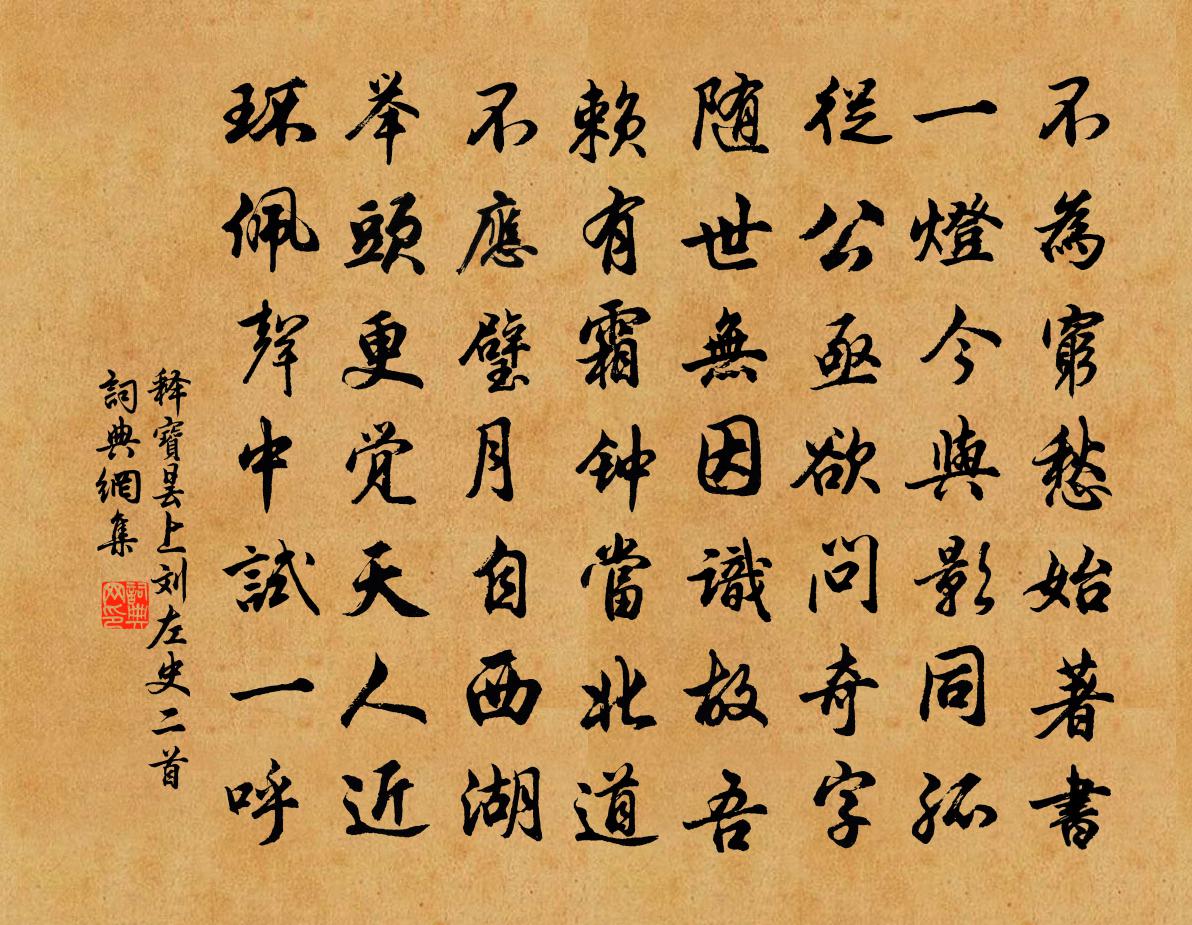 不為窮愁始著書
一燈今與影同孤
從公亟欲問奇字
随世無因識故吾
賴有霜钟當北道
不應璧月自西湖
举頭更觉天人近
环佩聲中試一呼
释寶曇上刘左史二首
詞典網集
詞典網印